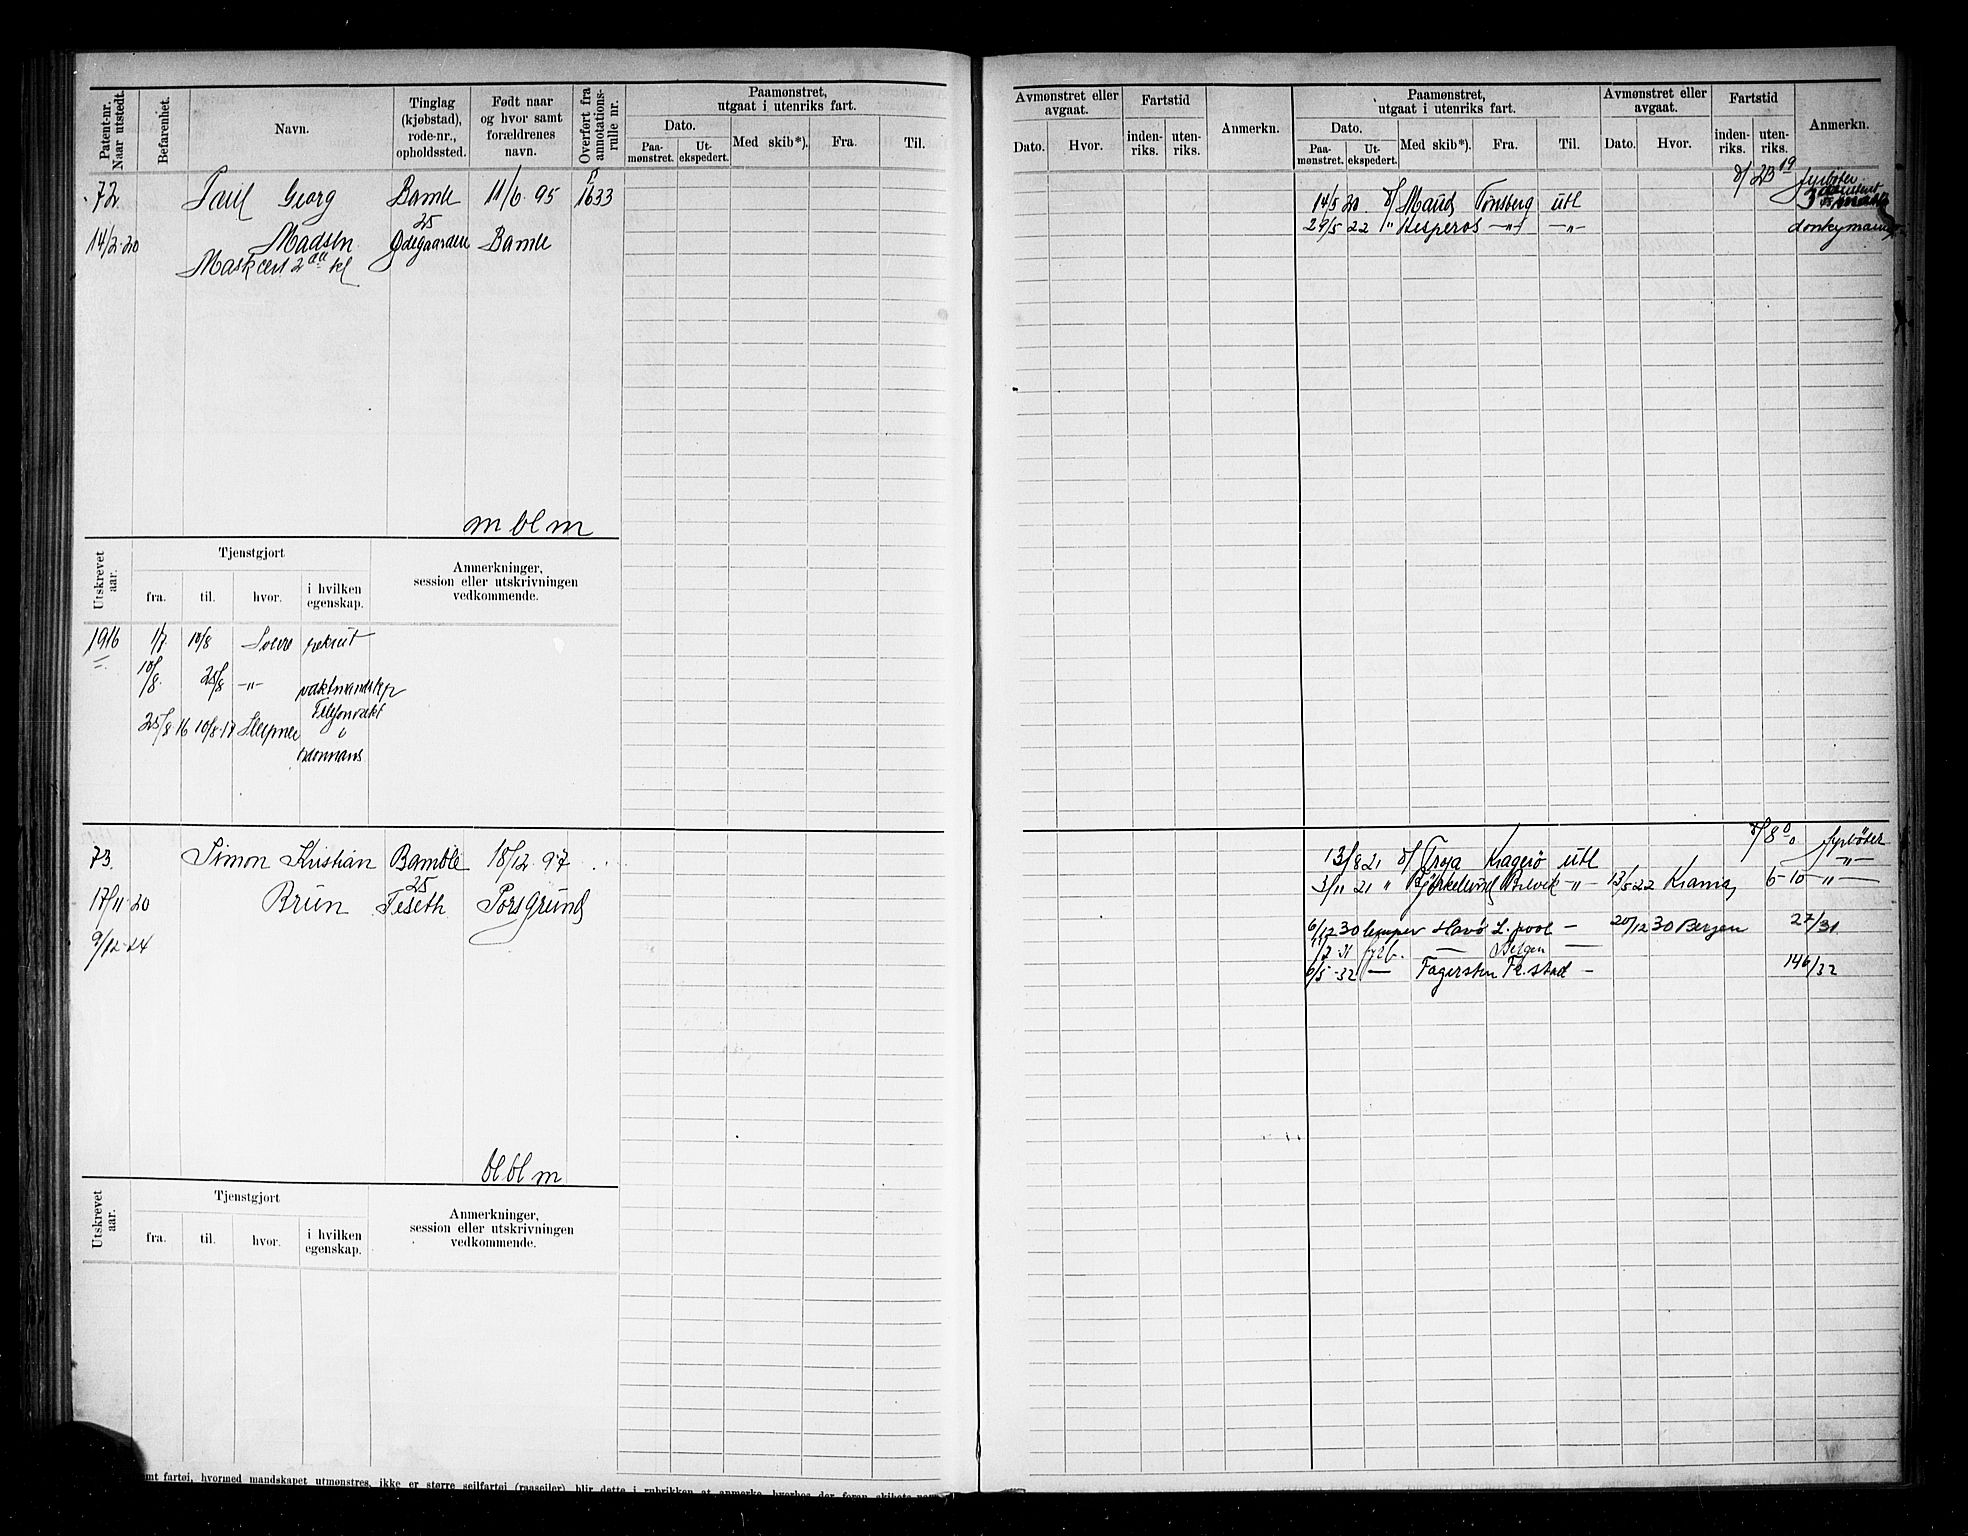 Patent-nr. Naar utstedt.
Befarenhet.
Navn.
Tinglag (kjøbstad), rode-nr., opholdssted.
Født naar og hvor samt forældrenes navn.
Overført fra annotations-rulle nr.
Paamønstret, utgaat i utenriks fart.
Dato.
Paa-mønstret.
Ut-ekspedert.
Med skib*).
Fra.
Til.
Avmønstret eller avgaat.
Dato.
Hvor.
Fartstid
inden-riks.
uten-riks.
Anmerkn.
Paamønstret, utgaat i utenriks fart.
Dato.
Paa-mønstret.
Ut-ekspedert.
Med skib*).
Fra.
Til.
Avmønstret eller avgaat.
Dato.
Hvor.
Fartstid
inden-riks.
uten-riks.
Anmerkn.
72 Paul Georg Bamle 11/6 95 1633
25
14/2-20 Madsen Ødegaarden Bamle
m bl m
23 19 fyrbøter
14/5 20 Maud Tønsberg utl
29/5 22 " Hesperos —"— —"— donkymann
Utskrevet aar.
Tjenstgjort
fra.
til.
hvor.
i hvilken egenskap.
Anmerkninger, session eller utskrivningen vedkommende.
1916 1/7 10/8 rekrut
10/8 25/8 —"—
25/8 16 10/8-17 Sleipner Telefonvakt
73. Simon Kristian Bamble 18/12 97
25
17/11-20 Brun Feseth Porsgrund
9/12-24
bl bl m
fyrbøter
13/8 21 Troja Kragerø utl —"—
3/11 21 " Bjørkelund Brevik —"— 13/5 22 6-10 —"—
6/12 30 lemper Havø L.pool — 20/12 30 Bergen 27/31
fyrb. —
6/5-32 — Fagersten Fr.stad — 146/32
Utskrevet aar.
Tjenstgjort
fra.
til.
hvor.
i hvilken egenskap.
Anmerkninger, session eller utskrivningen vedkommende.
fartøi, hvormed mandskapet utmønstres, ikke er større seilfartøi (raaseiler), blir dette i rubrikken at anmerke